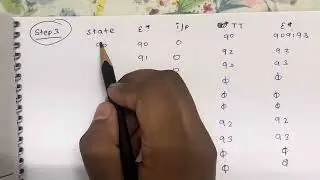 Step 3
state ε* i/p TT ε*
q0 q0 0 q0 q0q1q3
q1 0 q2 q2
q3 q3
φ φ
φ φ
q2 q2
q3 q3
φ φ
φ φ